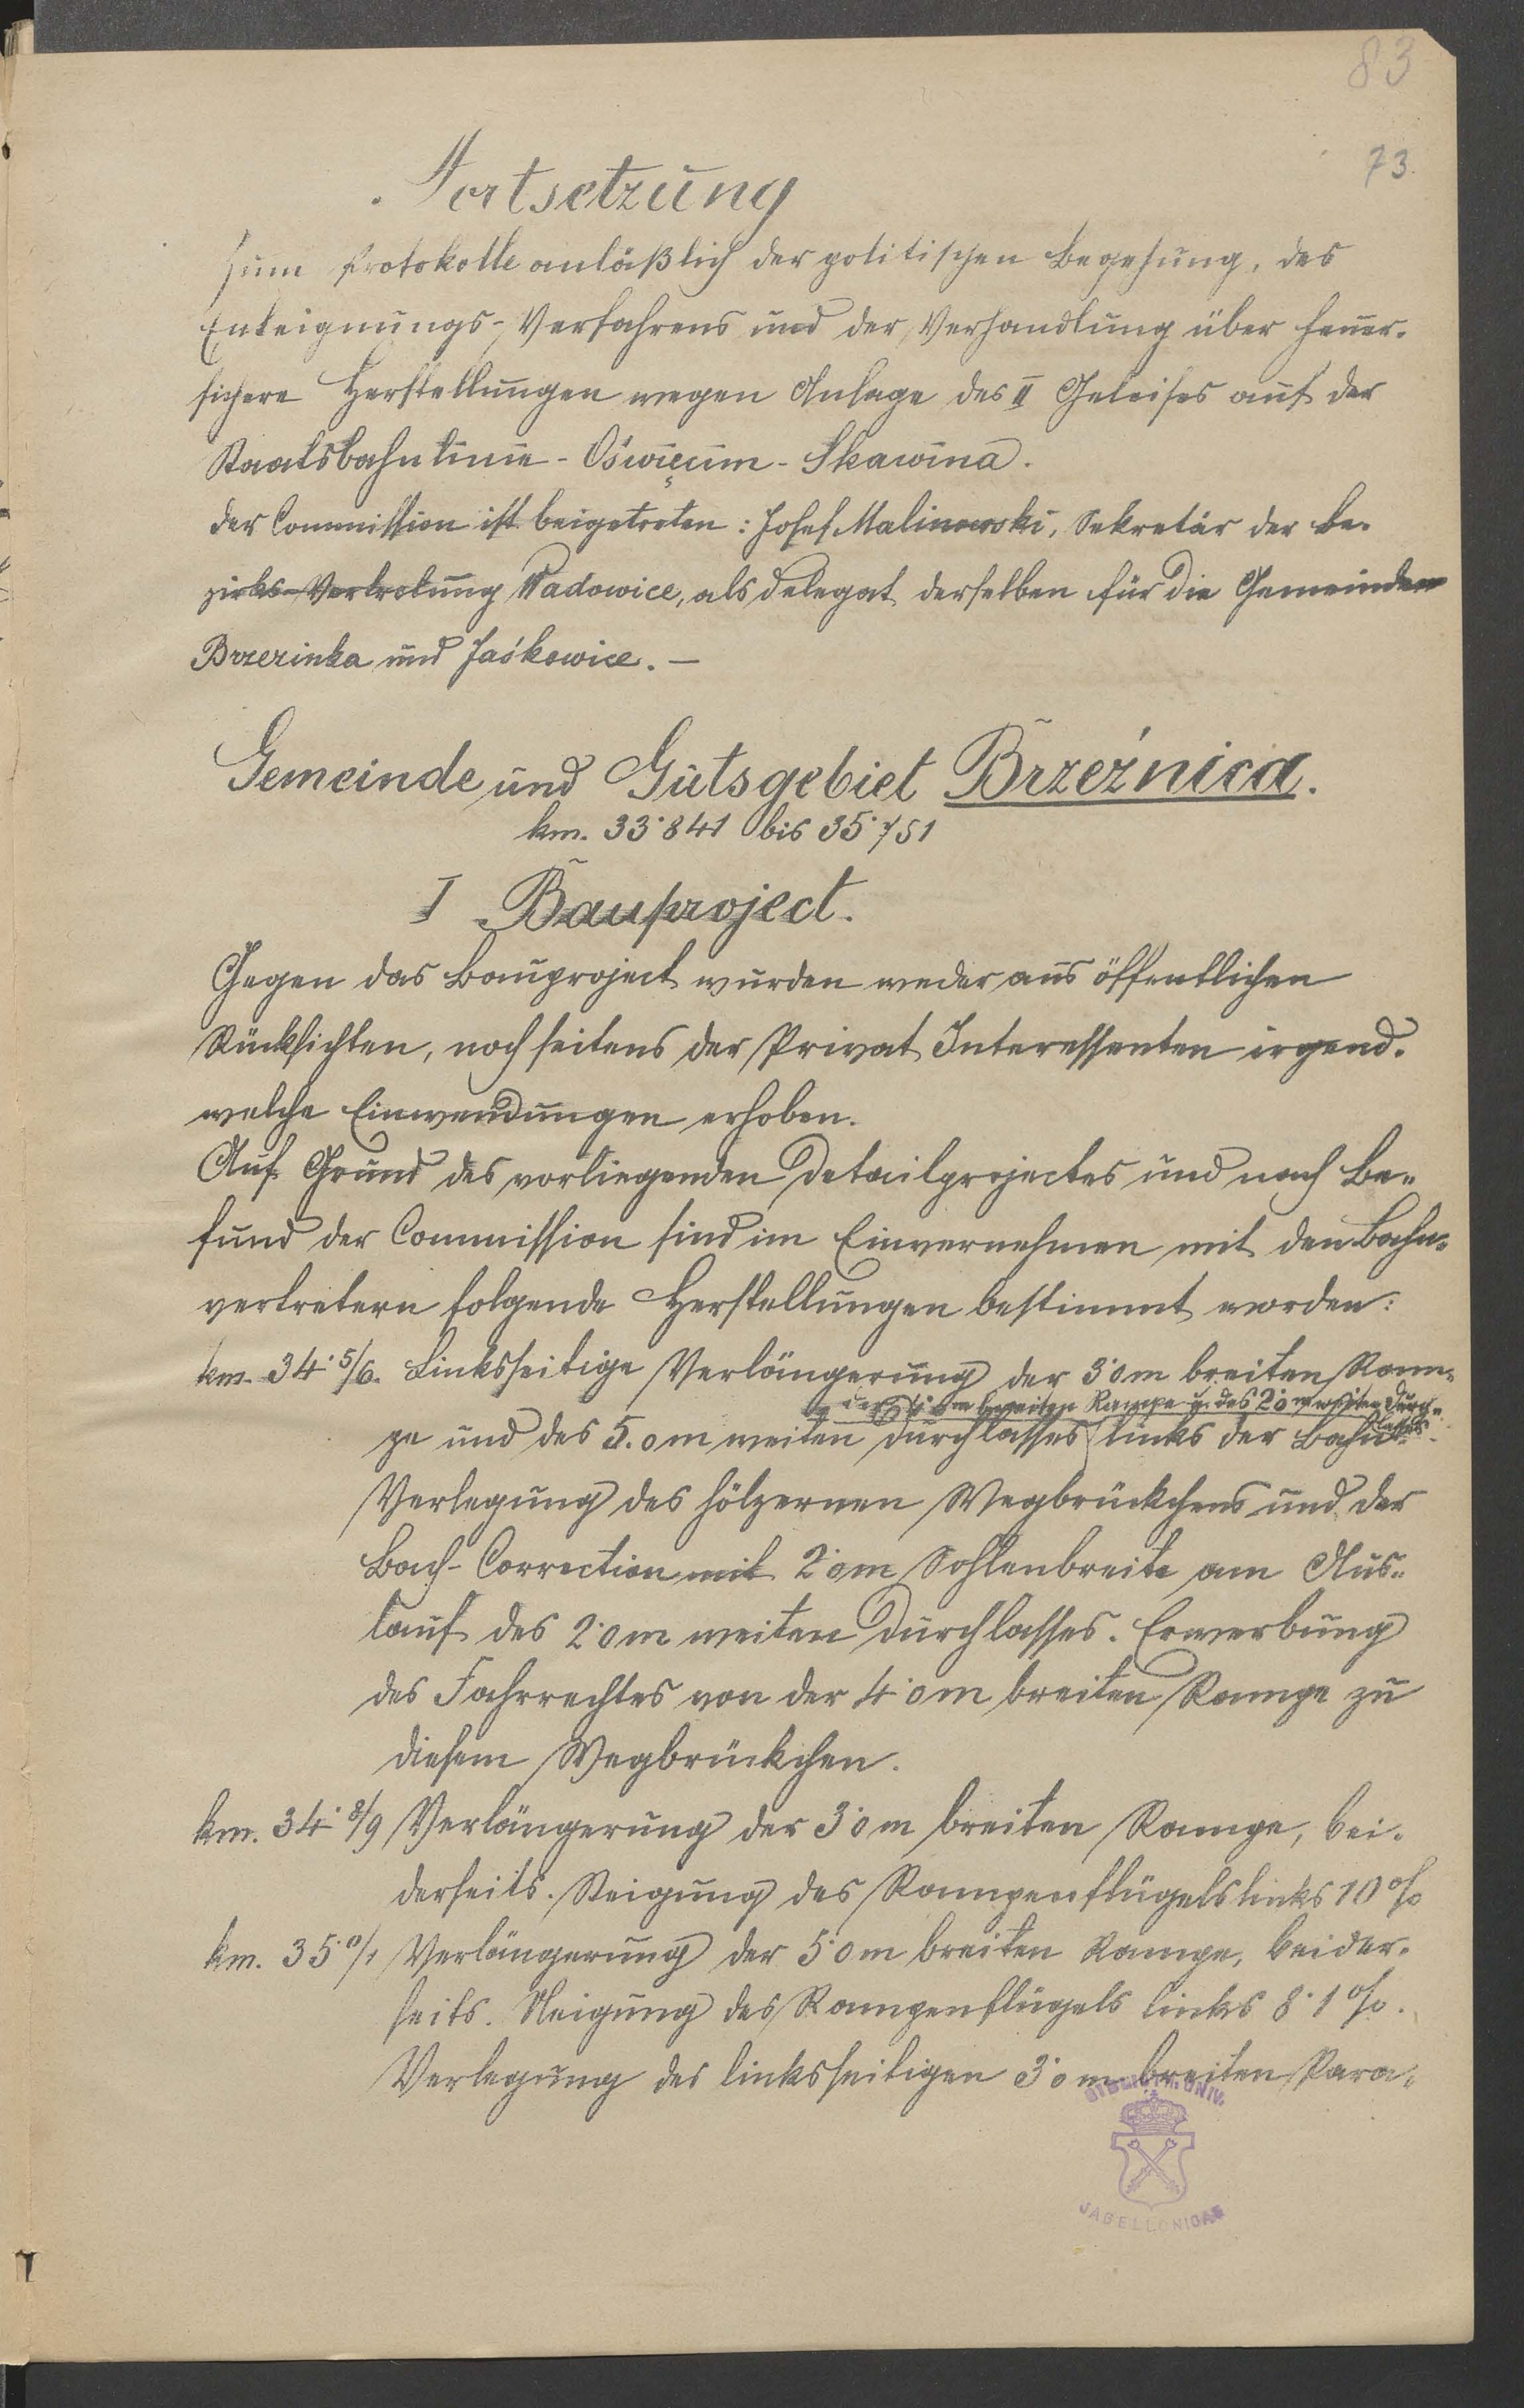 83
73
Fortsetzung
zum Protokolle anläßlich der politischen Begehung, des
Enteignungs-Verfahrens und der Verhandlung über feuer-
sichere Herstellungen wegen Anlage des II Geleises auf der
Staatsbahnlinie - Oświęcim - Skawina.
Der Commission ist beigetreten: Josef Malinowski, Sekretär der Be-
zirks-Vertretung Wadowice, als Delegat derselben für die Gemeinden
Brzezinka und Jaśkowice. —
Gemeinde und Gutsgebiet Brzeźnica.
km. 33·841 bis 35·751
I Bauproject.
Gegen das Bauproject wurden weder aus öffentlichen
Rücksichten, noch seitens der Privat Interessenten irgend-
welche Einwendungen erhoben.
Auf Grund des vorliegenden Detailprojectes und nach Be-
fund der Commission sind im Einvernehmen mit den Bahn-
vertretern folgende Herstellungen bestimmt worden:
km. 34·5/6. Linksseitige Verlängerung der 3·0 m breiten Ram-
der 4·0 m breiten Rampe u. des 2·0 m weiten Durch-
lasses
pe und des 5.0 m weiten Durchlasses links der Bahn.
Verlegung des hölzernen Wegbrückchens und der
Bach-Correction mit 2·0 m Sohlenbreite am Aus-
lauf des 2·0 m weiten Durchlasses. Erwerbung
des Fahrrechtes von der 4·0 m breiten Rampe zu
diesem Wegbrückchen.
km. 34·8/9 Verlängerung der 3·0 m breiten Rampe, bei-
derseits. Steigung des Rampenflügels links 10%
km. 35·0/1 Verlängerung der 5·0 m breiten Rampe, beider-
seits. Neigung des Rampenflügels links 8·1%.
Verlegung des linksseitigen 3·0 m breiten Para-
BIBLIOTH. UNIV.
JAGELLONICAE